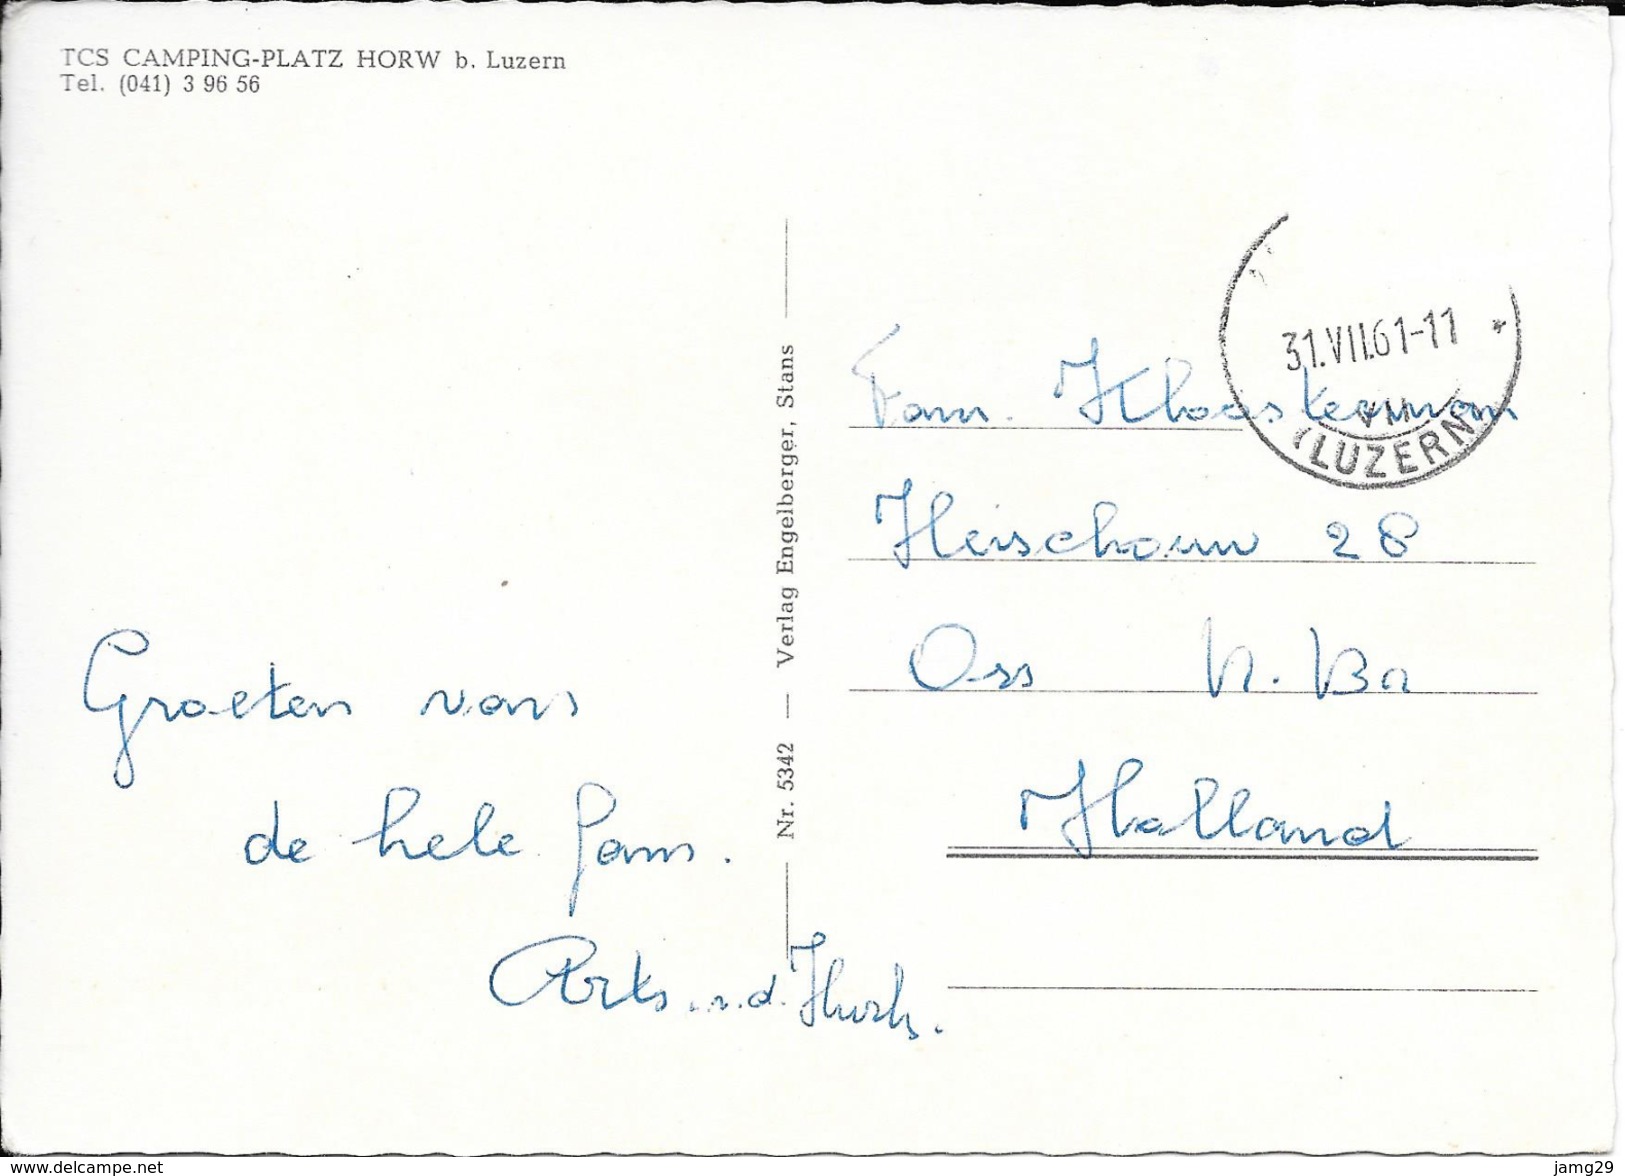 TCS CAMPING-PLATZ HORW b. Luzern
Tel. (041) 3 96 56
Groeten van
de hele fam.
v.d.
Nr. 5342 — Verlag Engelberger, Stans
31.VII.61-11
(LUZERN)
Fam. Kloosterman
28
Oss N. Br
Holland
www.delcampe.net
jamg29